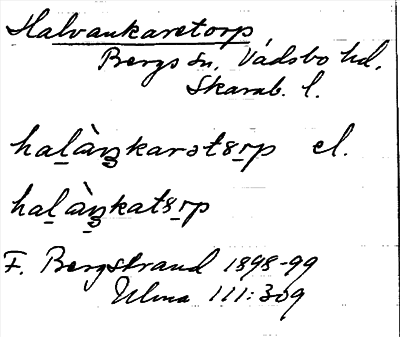 Halvankaretorp,
Bergs sn, Vadsbo hd.
Skarab. l.
haḻàŋkarətso̱rp el.
haḻàŋkatso̱rp
F. Bergstrand 1898-99
Ulma 111:309